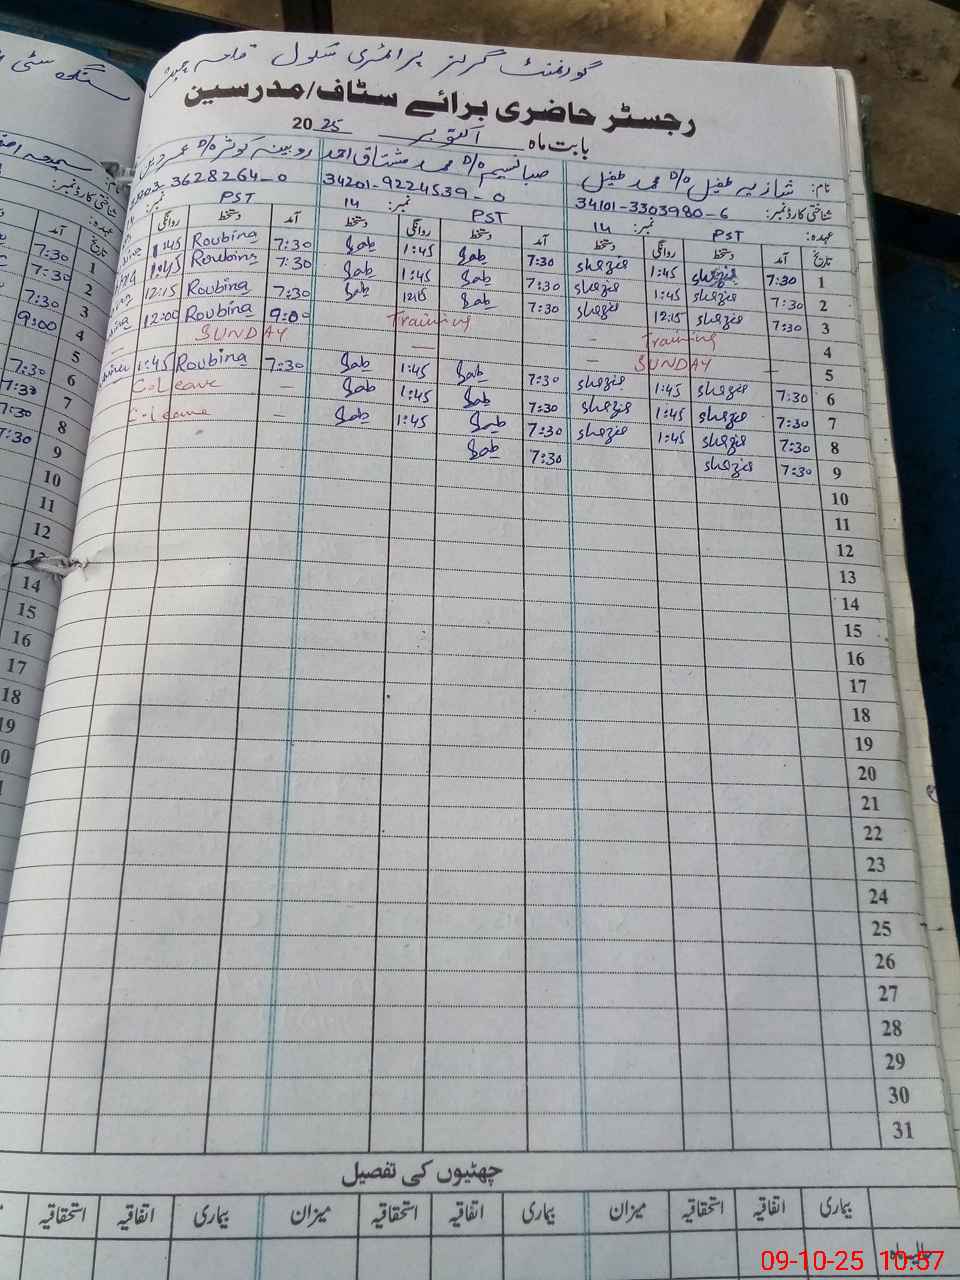 گورنمنٹ گرلز پرائمری سکول قلعہ
رجسٹر حاضری برائے سٹاف/مدرسین
بابت ماہ اکتوبر 2025
نام: شازیہ طفیل D/o محمد طفیل صبا نسیم D/o محمد مشتاق احمد روبینہ کوثر D/o
شناختی کارڈ نمبر: 34101-3303980-6 34201-9224539-0 3628264-0
عہدہ: PST نمبر: 14 PST نمبر: 14 PST نمبر:
تاریخ آمد دستخط روانگی دستخط آمد دستخط روانگی دستخط آمد دستخط روانگی
1 7:30 shazia 1:45 shazia 7:30 Sab 1:45 Sab 7:30 Roubina 1:45
2 7:30 shazia 1:45 shazia 7:30 Sab 1:45 Sab 7:30 Roubina 1:45
3 7:30 shazia 12:15 shazia 7:30 Sab 12:15 Sab 7:30 Roubina 12:15
4 Training – Training 9:00 Roubina 12:00
5 – SUNDAY – SUNDAY –
6 7:30 shazia 1:45 shazia 7:30 Sab 1:45 Sab 7:30 Roubina 1:45
7 7:30 shazia 1:45 shazia 7:30 Sab 1:45 Sab – C.Leave
8 7:30 shazia 1:45 shazia 7:30 Sab 1:45 Sab – C.Leave
9 7:30 shazia 7:30 Sab
10
11
12
13
14
15
16
17
18
19
20
21
22
23
24
25
26
27
28
29
30
31
چھٹیوں کی تفصیل
بیماری اتفاقیہ استحقاقیہ میزان بیماری اتفاقیہ استحقاقیہ میزان بیماری اتفاقیہ استحقاقیہ
تاریخ آمد
1 7:30
2 7:30
3 7:30
4 9:00
5
6 7:30
7 7:30
8 7:30
9 7:30
10
11
12
13
14
15
16
17
18
19
09-10-25 10:57